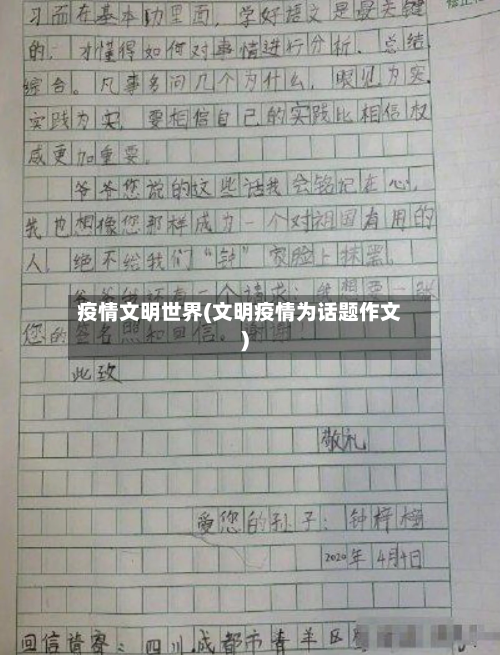 习而在基本功里面，学好语文是最关键
的，才懂得如何对事情进行分析、总结、
综合。凡事多问几个为什么，眼见为实，
实践为实，要相信自己的实践比相信权
威更加重要。
爷爷您说的这些话我会铭记在心，
我也想像您那样成为一个对祖国有用的
人，绝不给我们“钟”家脸上抹黑。
疫情文明世界(文明疫情为话题作文
)
您的签名照和回信。谢谢！
此致
敬礼
爱您的孙子：钟梓
2020年4月4日
回信皆寄：四川成都市青羊区